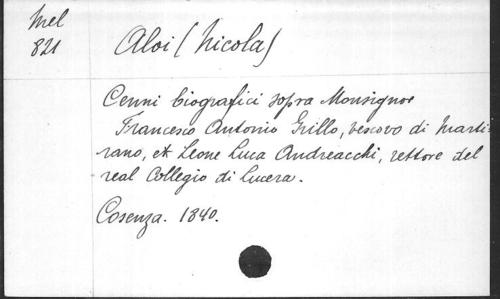 Mel
821
Aloi (Nicola)
Cenni biografici sopra Monsignor
Francesco Antonio Grillo, vescovo di Marti-
rano, et Leone Luca Andreacchi, rettore del
real Collegio di Lucera.
Cosenza. 1840.